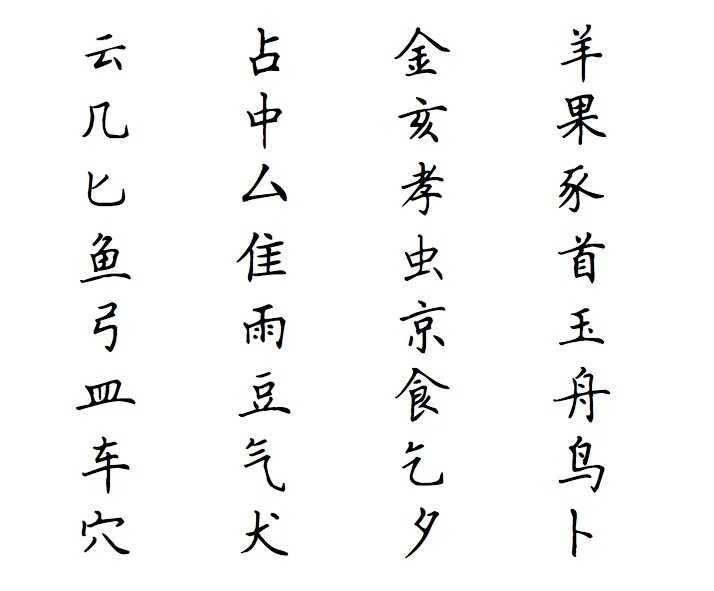 云 占 金 羊
几 中 亥 果
匕 厶 孝 豕
鱼 隹 虫 首
弓 雨 京 玉
皿 豆 食 舟
车 气 乞 鸟
穴 犬 夕 卜